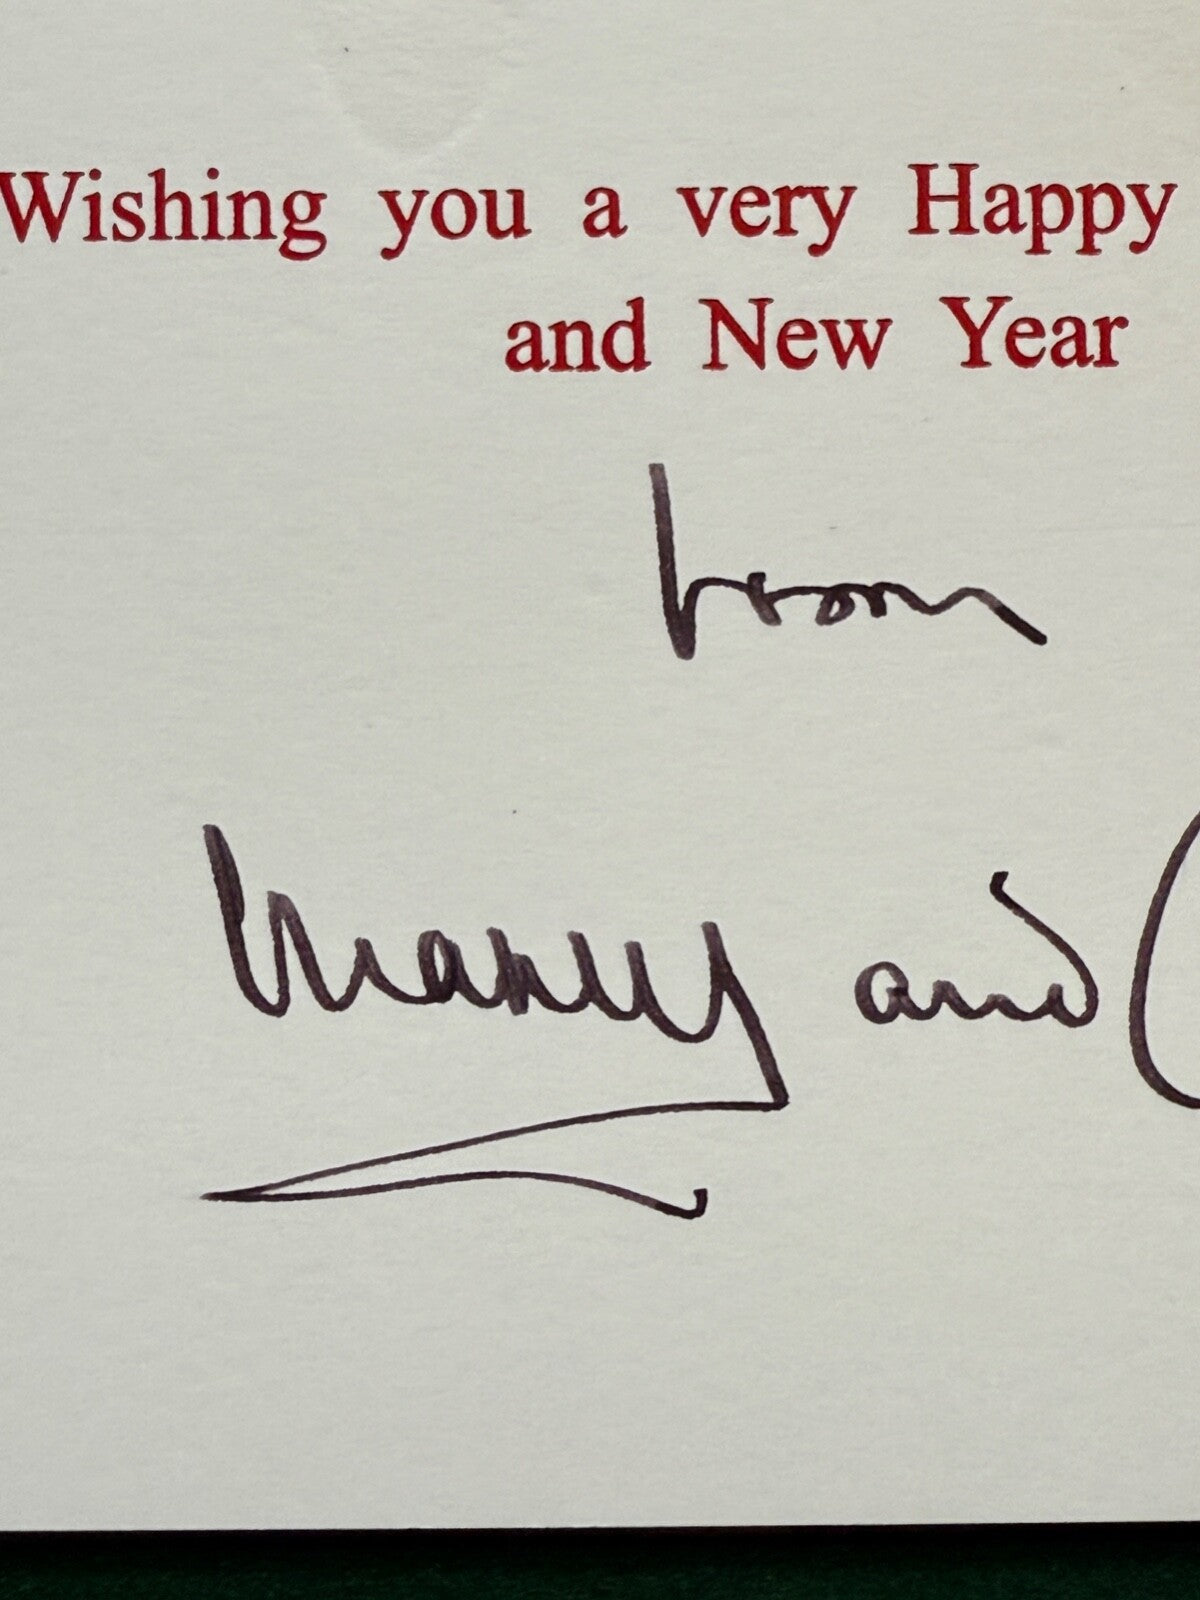 Wishing you a very Happy
and New Year
from
and